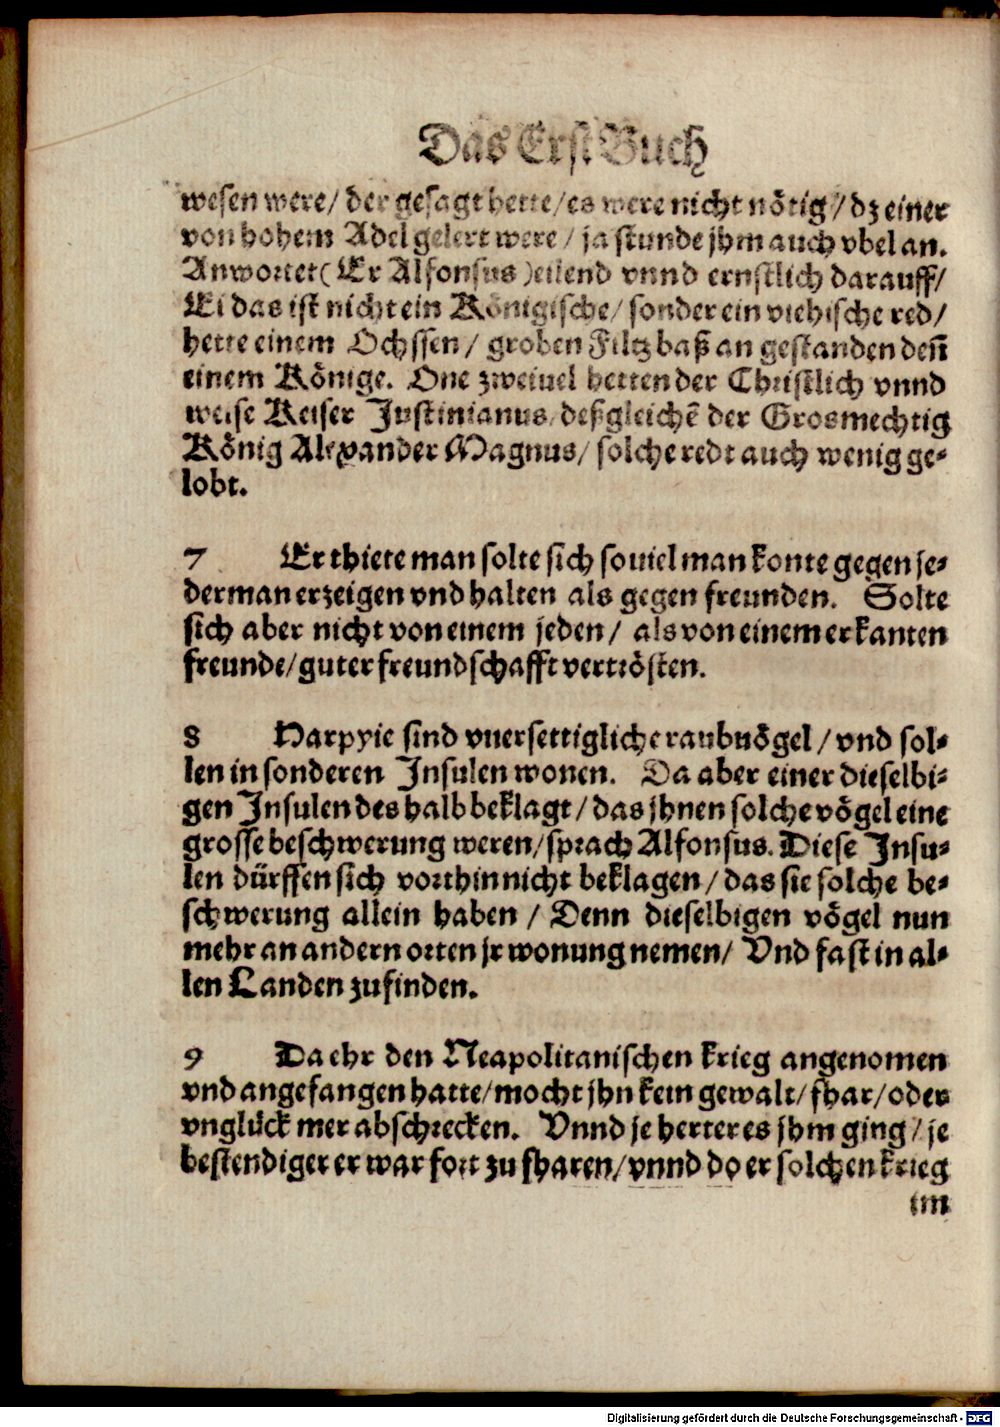 Das Erst Buch
wesen were/ der gesagt hette/ es were nicht nötig/ dz einer
von hohem Adel gelert were/ ja stunde jhm auch vbel an.
Anwortet (Er Alfonsus) eilend vnnd ernstlich darauff/
Ei das ist nicht ein Königische/ sonder ein viehische red/
hette einem Ochssen/ groben Filtz baß an gestanden den̄
einem Könige. One zweiuel hetten der Christlich vnnd
weise Keiser Justinianus/ deßgleichē der Grosmechtig
König Alexander Magnus/ solche redt auch wenig ge-
lobt.
7 Er thiete man solte sich souiel man konte gegen je-
derman erzeigen vnd halten als gegen freunden. Solte
sich aber nicht von einem jeden/ als von einem erkanten
freunde/ guter freundschafft vertrösten.
8 Harpyie sind vnersettigliche raubuögel/ vnd sol-
len in sonderen Insulen wonen. Da aber einer dieselbi-
gen Insulen des halb beklagt/ das jhnen solche vögel eine
grosse beschwerung weren/ sprach Alfonsus. Diese Insu-
len dürffen sich vorthin nicht beklagen/ das sie solche be-
schwerung allein haben/ Denn dieselbigen vögel nun
mehr an andern orten jr wonung nemen/ Vnd fast in al-
len Landen zufinden.
9 Da ehr den Neapolitanischen krieg angenomen
vnd angefangen hatte/ mocht jhn kein gewalt/ fhar/ oder
vnglück mer abschrecken. Vnnd je herter es jhm ging/ je
bestendiger er war fort zu fharen/ vnnd do er solchen krieg
im
Digitalisierung gefördert durch die Deutsche Forschungsgemeinschaft - DFG